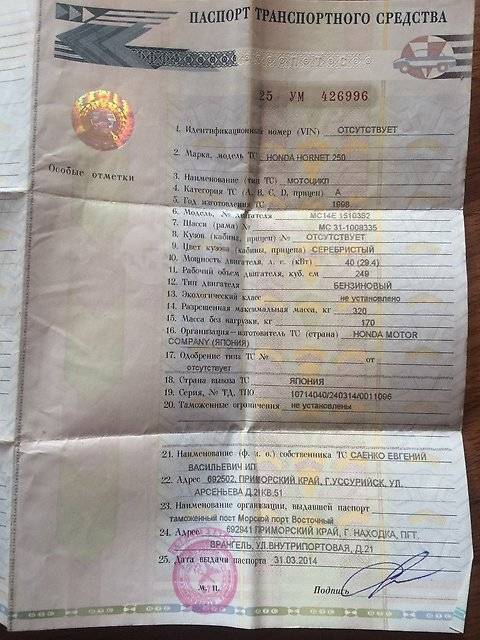 ПАСПОРТ ТРАНСПОРТНОГО СРЕДСТВА
25 УМ 426996
Особые отметки
1. Идентификационный номер (VIN) ОТСУТСТВУЕТ
2. Марка, модель ТС HONDA HORNET 250
3. Наименование (тип ТС) МОТОЦИКЛ
4. Категория ТС (А, В, С, D, прицеп) А
5. Год изготовления ТС 1998
6. Модель, № двигателя MC14E 1510352
7. Шасси (рама) № MC 31-1008335
8. Кузов (кабина, прицеп) № ОТСУТСТВУЕТ
9. Цвет кузова (кабины, прицепа) СЕРЕБРИСТЫЙ
10. Мощность двигателя, л. с. (кВт) 40 (29.4)
11. Рабочий объем двигателя, куб. см 249
12. Тип двигателя БЕНЗИНОВЫЙ
13. Экологический класс не установлено
14. Разрешенная максимальная масса, кг 320
15. Масса без нагрузки, кг 170
16. Организация—изготовитель ТС (страна) HONDA MOTOR
COMPANY (ЯПОНИЯ)
17. Одобрение типа ТС № от
отсутствует
18. Страна вывоза ТС ЯПОНИЯ
19. Серия, № ТД, ТПО 10714040/240314/0011096
20. Таможенные ограничения не установлены
21. Наименование (ф. и. о.) собственника ТС САЕНКО ЕВГЕНИЙ
ВАСИЛЬЕВИЧ ИП
22. Адрес 692502, ПРИМОРСКИЙ КРАЙ, Г.УССУРИЙСК, УЛ.
АРСЕНЬЕВА Д.2КВ.51
23. Наименование организации, выдавшей паспорт
таможенный пост Морской порт Восточный
24. Адрес 692941 ПРИМОРСКИЙ КРАЙ, Г. НАХОДКА, ПГТ.
ВРАНГЕЛЬ, УЛ.ВНУТРИПОРТОВАЯ, Д.21
25. Дата выдачи паспорта 31.03.2014
М. П. Подпись